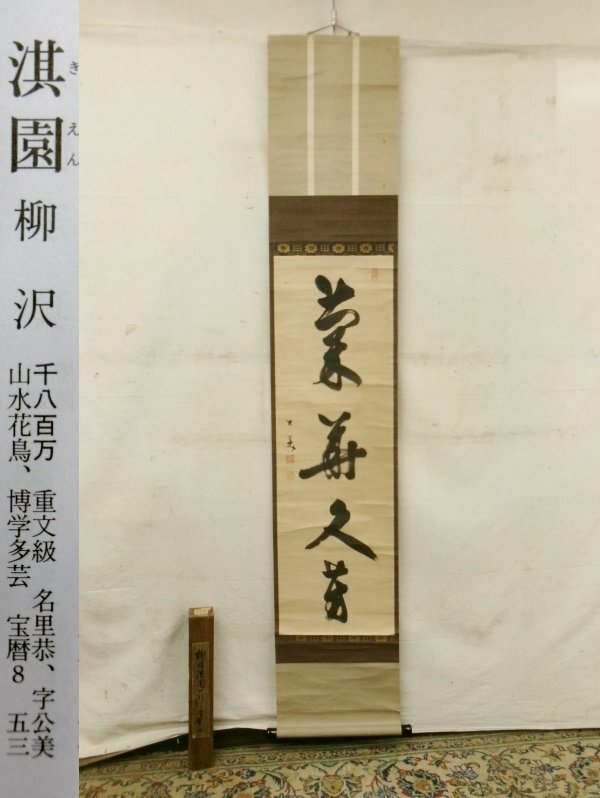 淇園
きえん
柳沢
千八百万 重文級 名里恭、字公美
山水花鳥、博学多芸 宝暦8 五三
菊華久芳
公美